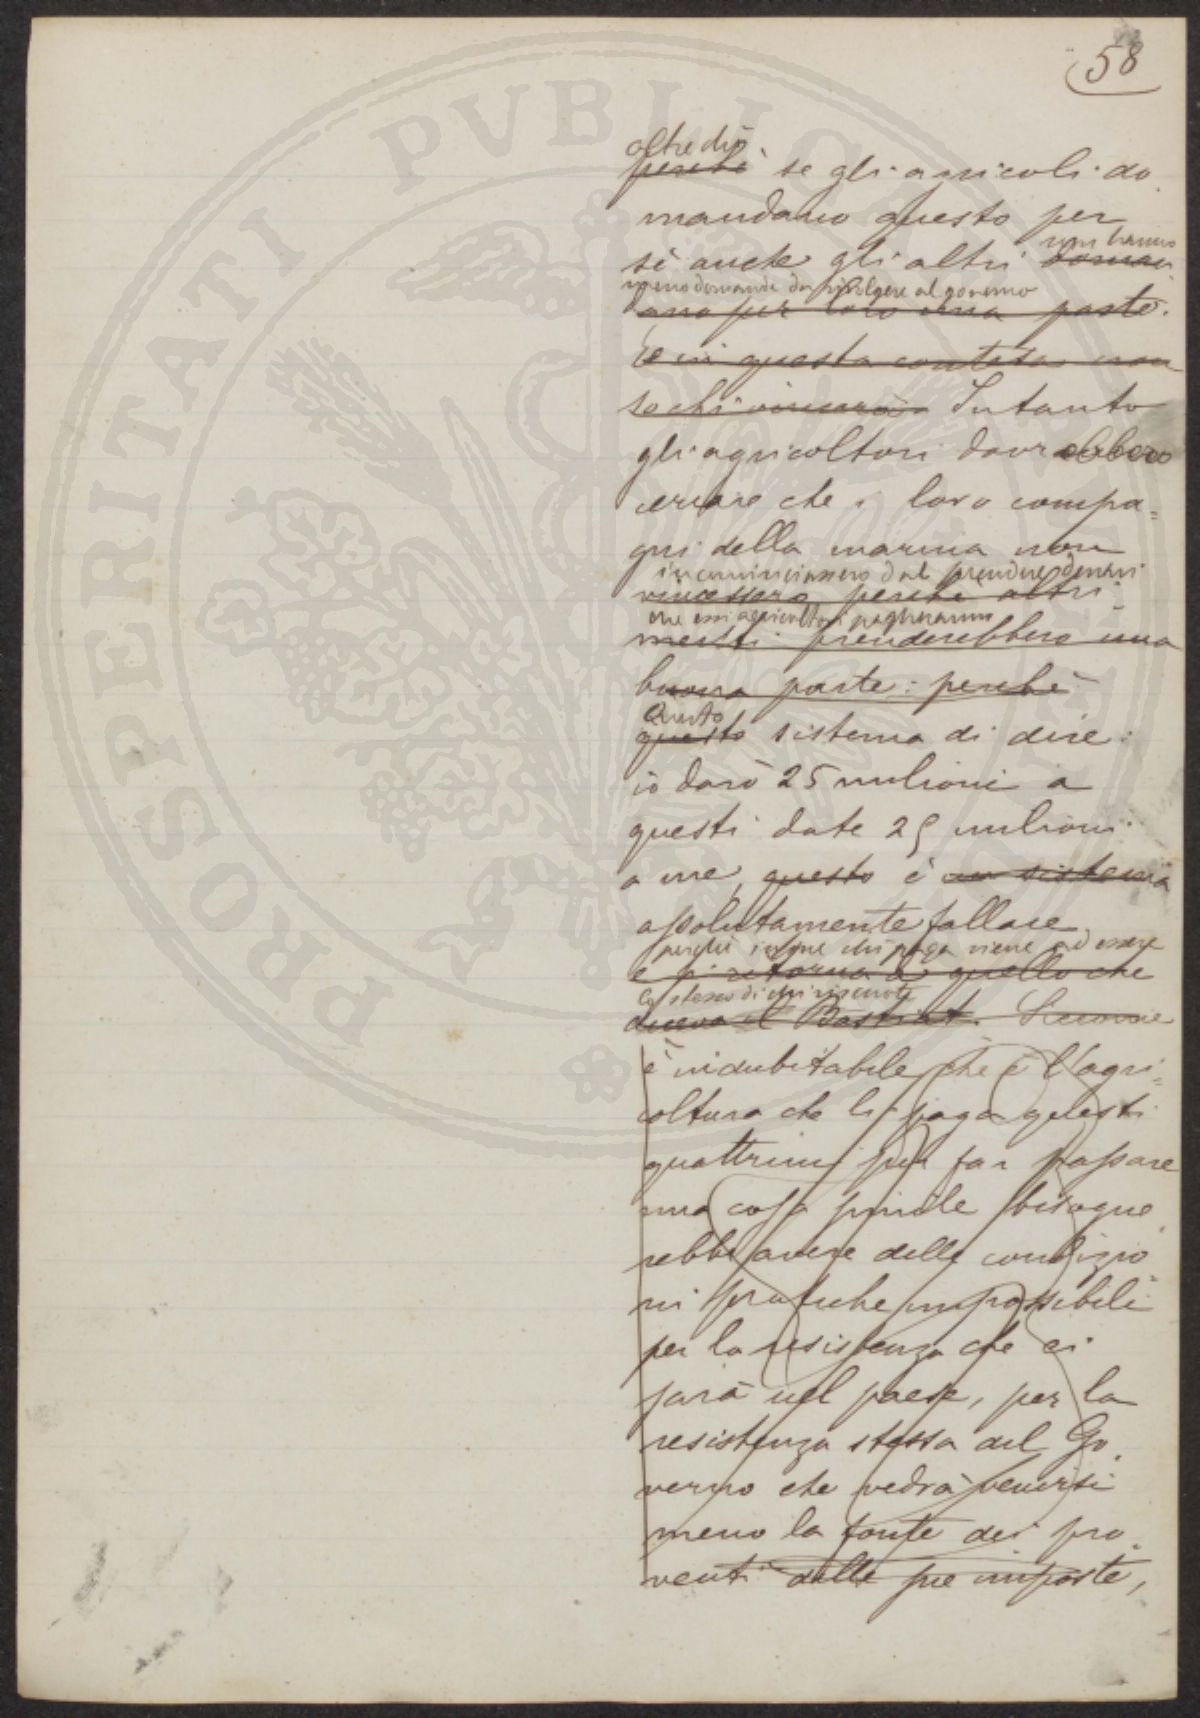 58
oltre di ciò
perchè se gli agricoli do
mandano questo per
sè anche gli altri doman
non hanno
meno domande da rivolgere al governo
dano per loro una parte.
E in questa contesa non
so chi vincerà. Intanto
gli agricoltori dovrebbero
curare che i loro compa=
gni della marina non
incominciassero dal prendere denari
vincessero perchè altri
che essi agricoltori pagheranno
menti prenderebbero una
buona parte: perchè
Questo
questo sistema di dire:
io darò 25 milioni a
questi date 25 milioni
a me, questo è un sistema
assolutamente fallace
perchè in fine chi paga viene ad essere
e si ritorna a quello che
lo stesso di chi riscuote
diceva il Bastiat. Siccome
è indubitabile che è l'agri=
coltura che li paga questi
quattrini per far passare
una cosa simile bisogne
rebbe avere delle condizio
ni pratiche impossibili
per la resistenza che ci
sarà nel paese, per la
resistenza stessa del Go
verno che vedrà venirsi
meno la fonte dei pro
venti delle sue imposte,
PROSPERITATI PVBLICAE